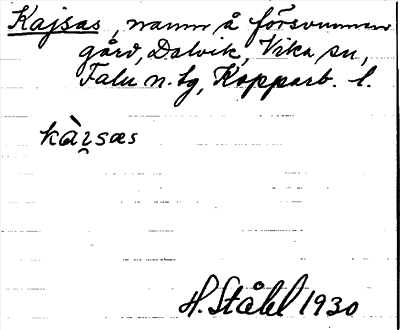 Kajsas, namn å försvunnen
gård, Dalvik, Vika sn,
Falu n. tg, Kopparb. l.
kàɪ̯sæs
H. Ståhl 1930